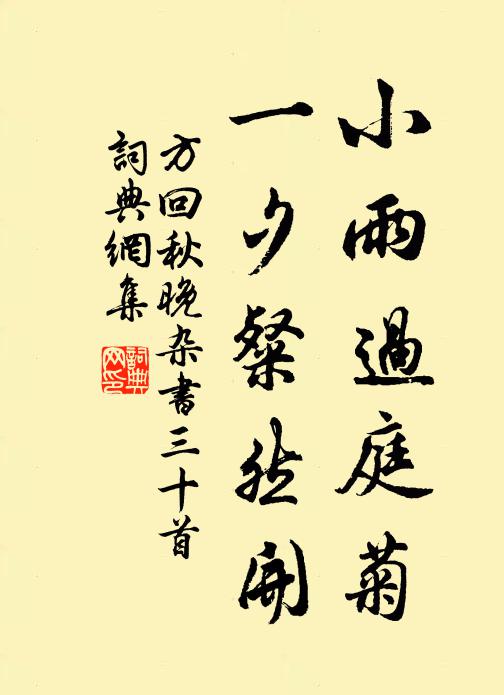 小雨過庭菊
一夕粲然開
方回秋晚杂書三十首
詞典網集
詞典网印